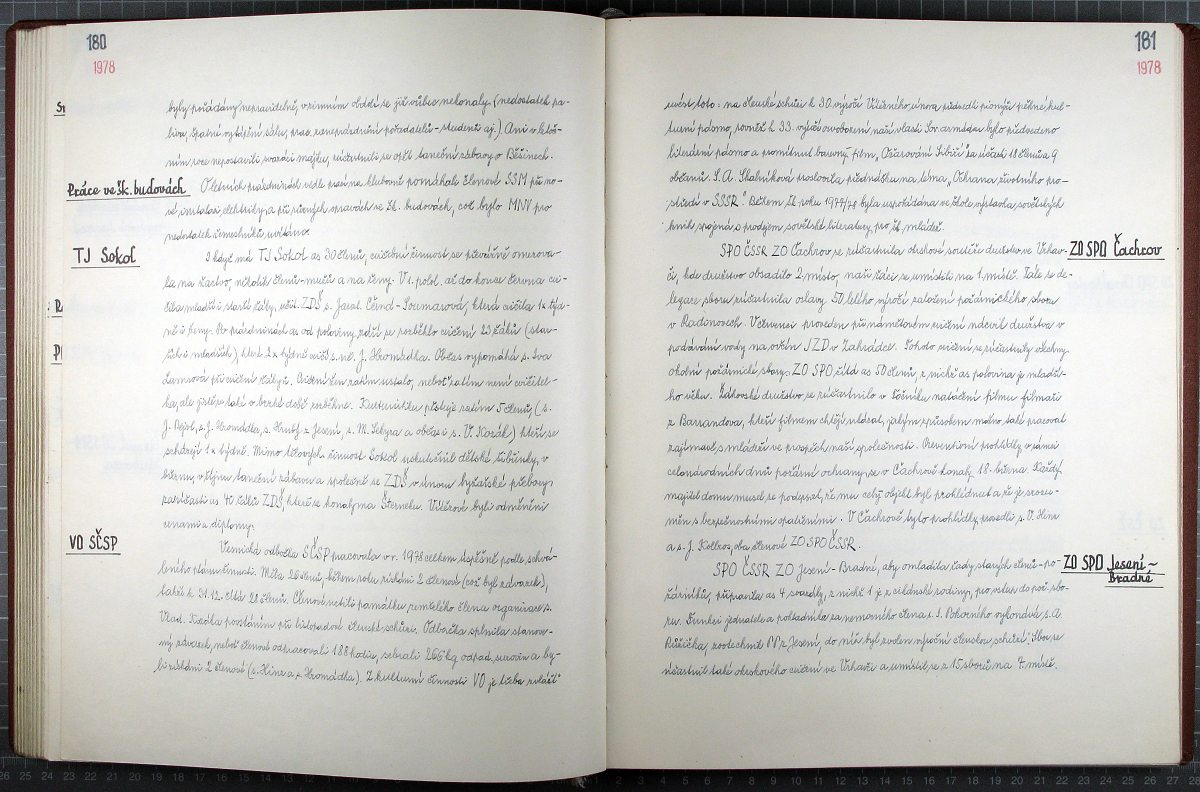 180
1978
byly pořádány nepravidelně, v zimním období se již vůbec nekonaly (nedostatek pa-
liva, špatné vytápění sálu, prac. zaneprázdnění pořadatelů - studentů aj.) Ani v letoš-
ním roce nepostavili svazáci májku, zúčastnili se opět taneční zábavy o Běšinech.
Práce ve šk. budovách
O letních prázdninách vedle prací na klubovně pomáhali členové SSM při no-
vé instalaci elektriky a při různých opravách ve šk. budovách, což bylo MNV pro
nedostatek řemeslníků uvítáno.
TJ Sokol
I když má TJ Sokol as 30 členů, cvičební činnost se převážně omezova-
la na žactvo, několik členů-mužů a na ženy. V 1. polol. až do konce června cvi-
čila mladší i starší žáky, učit. ZDŠ s. Jarosl. Černá - Soumarová, která cvičila 1x týd-
ně i ženy. Po prázdninách a od poloviny září se rozběhlo cvičení 23 žáků (star-
ších i mladších) které 2x týdně cvičí s. ved. J. Hromádka. Občas vypomáhá s. Iva
Lamsová při cvičení žákyň. Cvičení žen zatím ustalo, neboť zatím není cvičitel-
ka, ale jistě se také v brzké době rozběhne. Kulturistiku pěstuje zatím 5 členů, (s.
J. Rejol, s. J. Hromádka, s. Hrubý z Jesení, s. M. Sekyra a občas i s. V. Kozák) kteří se
scházejí 1x týdně. Mimo tělových. činnost Sokol uskutečnil dětské šibřinky, v
březnu, v říjnu taneční zábavu a společně se ZDŠ v únoru lyžařské přebory
za účasti as 40 žáků ZDŠ, které se konaly na Šterneku. Vítězové byli odměněni
cenami a diplomy.
VO SČSP
Vesnická odbočka SČSP pracovala v r. 1978 celkem úspěšně podle schvá-
leného plánu činnosti. Měla 26 členů, během roku získáni 2 členové (což byl závazek),
takže k 31.12. čítá 28 členů. Členové uctili památku zemřelého člena organizace s.
Vlad. Kůdla povstáním při listopadové členské schůzi. Odbočka splnila stanove-
ný závazek, neboť členové odpracovali 188 hodin, sebrali 266 kg odpad. surovin a by-
li získáni 2 členové (s. Hinz a s. Hromádka). Z kulturní činnosti VO je třeba zvlášť
181
1978
uvést toto: na členské schůzi k 30. výročí Vítězného února předvedli pionýři pěkné kul-
turní pásmo, rovněž k 33. výročí osvobození naší vlasti Sov. armádou bylo předvedeno
literární pásmo a promítnut barevný film „Očarování Sibiří" za účasti 18 členů a 9
občanů. S. A. Skalníková proslovila přednášku na téma „Ochrana životního pro-
středí v SSSR". Během šk. roku 1977/78 byla uspořádána ve škole výstavka sovětských
knih spojená s prodejem sovětské literatury pro šk. mládež.
ZO SPO Čachrov
SPO ČSSR ZO Čachrov se zúčastnila okrskové soutěže družstev ve Vrhav-
či, kde družstvo obsadilo 2. místo, naši žáci se umístili na 1. místě. Dále se de-
legace sboru zúčastnila oslavy 50. letého výročí založení požárnického sboru
v Radinovech. V červenci proveden při námětovém cvičení nácvik družstva v
podávání vody na ovčín JZD v Zahrádce. Tohoto cvičení se zúčastnily všechny
okolní požárnické sbory. ZO SPO čítá as 50 členů, z nichž as polovina je mladší-
ho věku. Žákovské družstvo se zúčastnilo v Točníku natáčení filmu filmaři
z Barrandova, kteří filmem chtějí ukázat, jakým způsobem možno také pracovat
zajímavě s mládeží ve prospěch naší společnosti. Preventivní prohlídky v rámci
celonárodních dnů požární ochrany se v Čachrově konaly 18. března. Každý
majitel domu musel se podepsat, že mu celý objekt byl prohlédnut a že je srozu-
měn s bezpečnostními opatřeními. V Čachrově tyto prohlídky provedli s. V. Hinz
a s. J. Kolros, oba členové ZO SPO ČSSR.
ZO SPO Jesení ~
Bradné
SPO ČSSR ZO Jesení - Bradné, aby omladila řady starých členů - po-
žárníků, připravila as 4 svazáky, z nichž 1 je z cikánské rodiny, pro vstup do pož. sbo-
ru. Funkci jednatele a pokladníka za nemocného člena s. J. Pokorného vykonává s. A.
Růžička, zootechnik PP z Jesení, do níž byl zvolen výroční členskou schůzí. Sbor se
zúčastnil také okrskového cvičení ve Vrhavči a umístil se z 15 sborů na 7. místě.